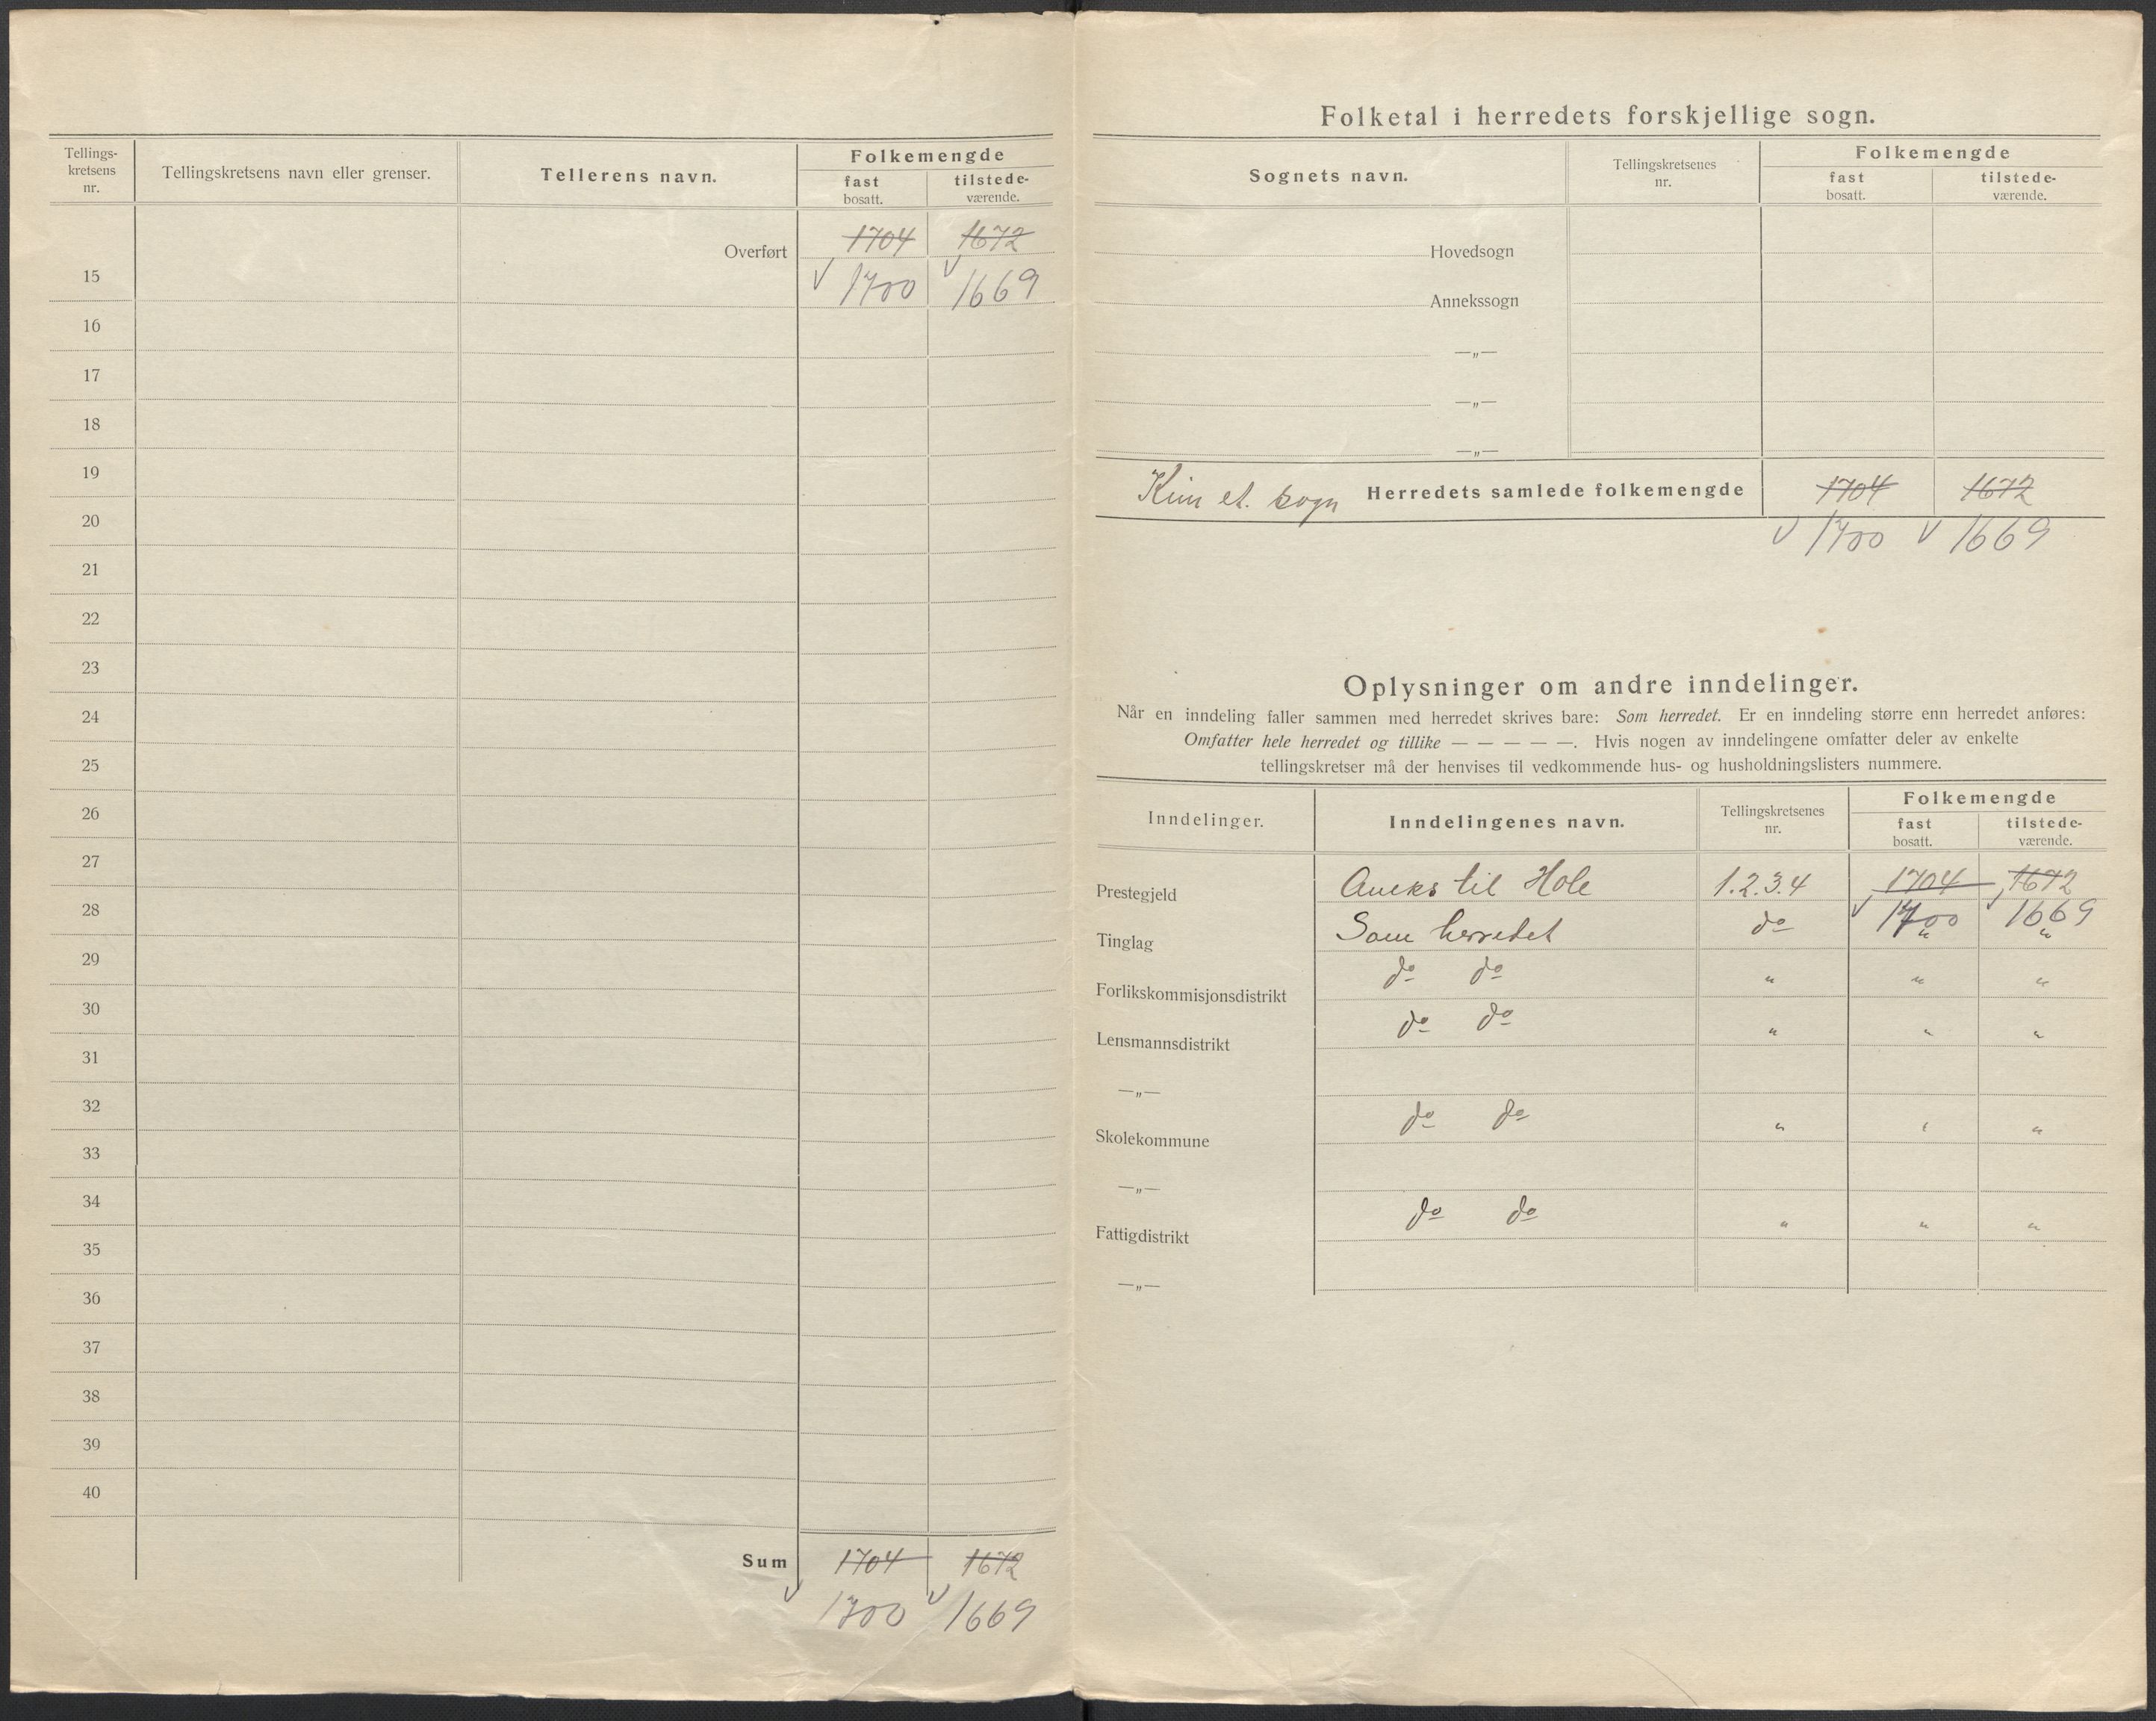 Tellings-
kretsens
nr.
Tellingskretsens navn eller grenser.
Tellerens navn.
Folkemengde
fast
bosatt.
tilstede-
værende.
Overført 1704 1672
15 1700 1669
16
17
18
19
20
21
22
23
24
25
26
27
28
29
30
31
32
33
34
35
36
37
38
39
40
Sum 1704 1672
1700 1669
Folketal i herredets forskjellige sogn.
Sognets navn.
Tellingskretsenes
nr.
Folkemengde
fast
bosatt.
tilstede-
værende.
Hovedsogn
Annekssogn
—„—
—„—
—„—
Kun et. sogn Herredets samlede folkemengde 1704 1672
1700 1669
Oplysninger om andre inndelinger.
Når en inndeling faller sammen med herredet skrives bare: Som herredet. Er en inndeling større enn herredet anføres:
Omfatter hele herredet og tillike — — — — —. Hvis nogen av inndelingene omfatter deler av enkelte
tellingskretser må der henvises til vedkommende hus- og husholdningslisters nummere.
Inndelinger.
Inndelingenes navn.
Tellingskretsenes
nr.
Folkemengde
fast
bosatt.
tilstede-
værende.
Prestegjeld Aneks til Hole 1.2.3.4 1704 1672
1700 1669
Tinglag Som herredet do " "
Forlikskommisjonsdistrikt do do " " "
Lensmannsdistrikt do do " " "
—„—
Skolekommune do do " " "
—„—
Fattigdistrikt do do " " "
—„—